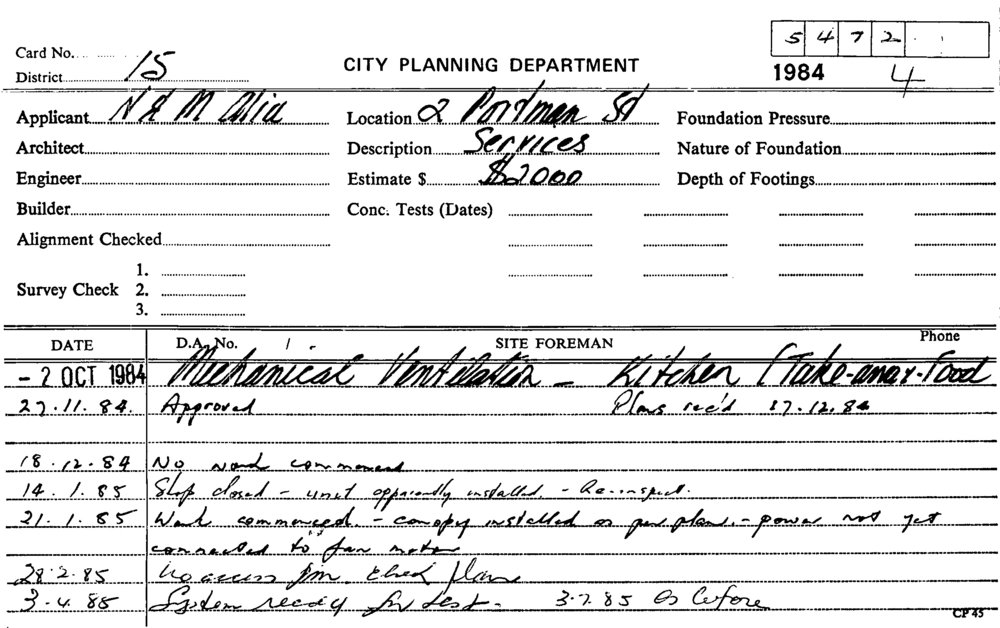 Card No. 5472
District 15 CITY PLANNING DEPARTMENT 1984 4
Applicant N & M Alia Location 2 Portman St Foundation Pressure
Architect Description Services Nature of Foundation
Engineer Estimate $ $2000 Depth of Footings
Builder Conc. Tests (Dates)
Alignment Checked
1.
Survey Check 2.
3.
DATE D.A. No. SITE FOREMAN Phone
- 2 OCT 1984 Mechanical Ventilation - Kitchen (Take-away-Food
27.11.84. Approved Plans rec'd 17.12.84
18.12.84 No work commenced
14.1.85 Shop closed - unit apparently installed. - Re-inspect.
21.1.85 Work commenced. - canopy installed as per plan. - power not yet
connected to fan motor
28.2.85 No access pm. check plans
3.4.85 System ready for test. 3.7.85 As before
CP 45